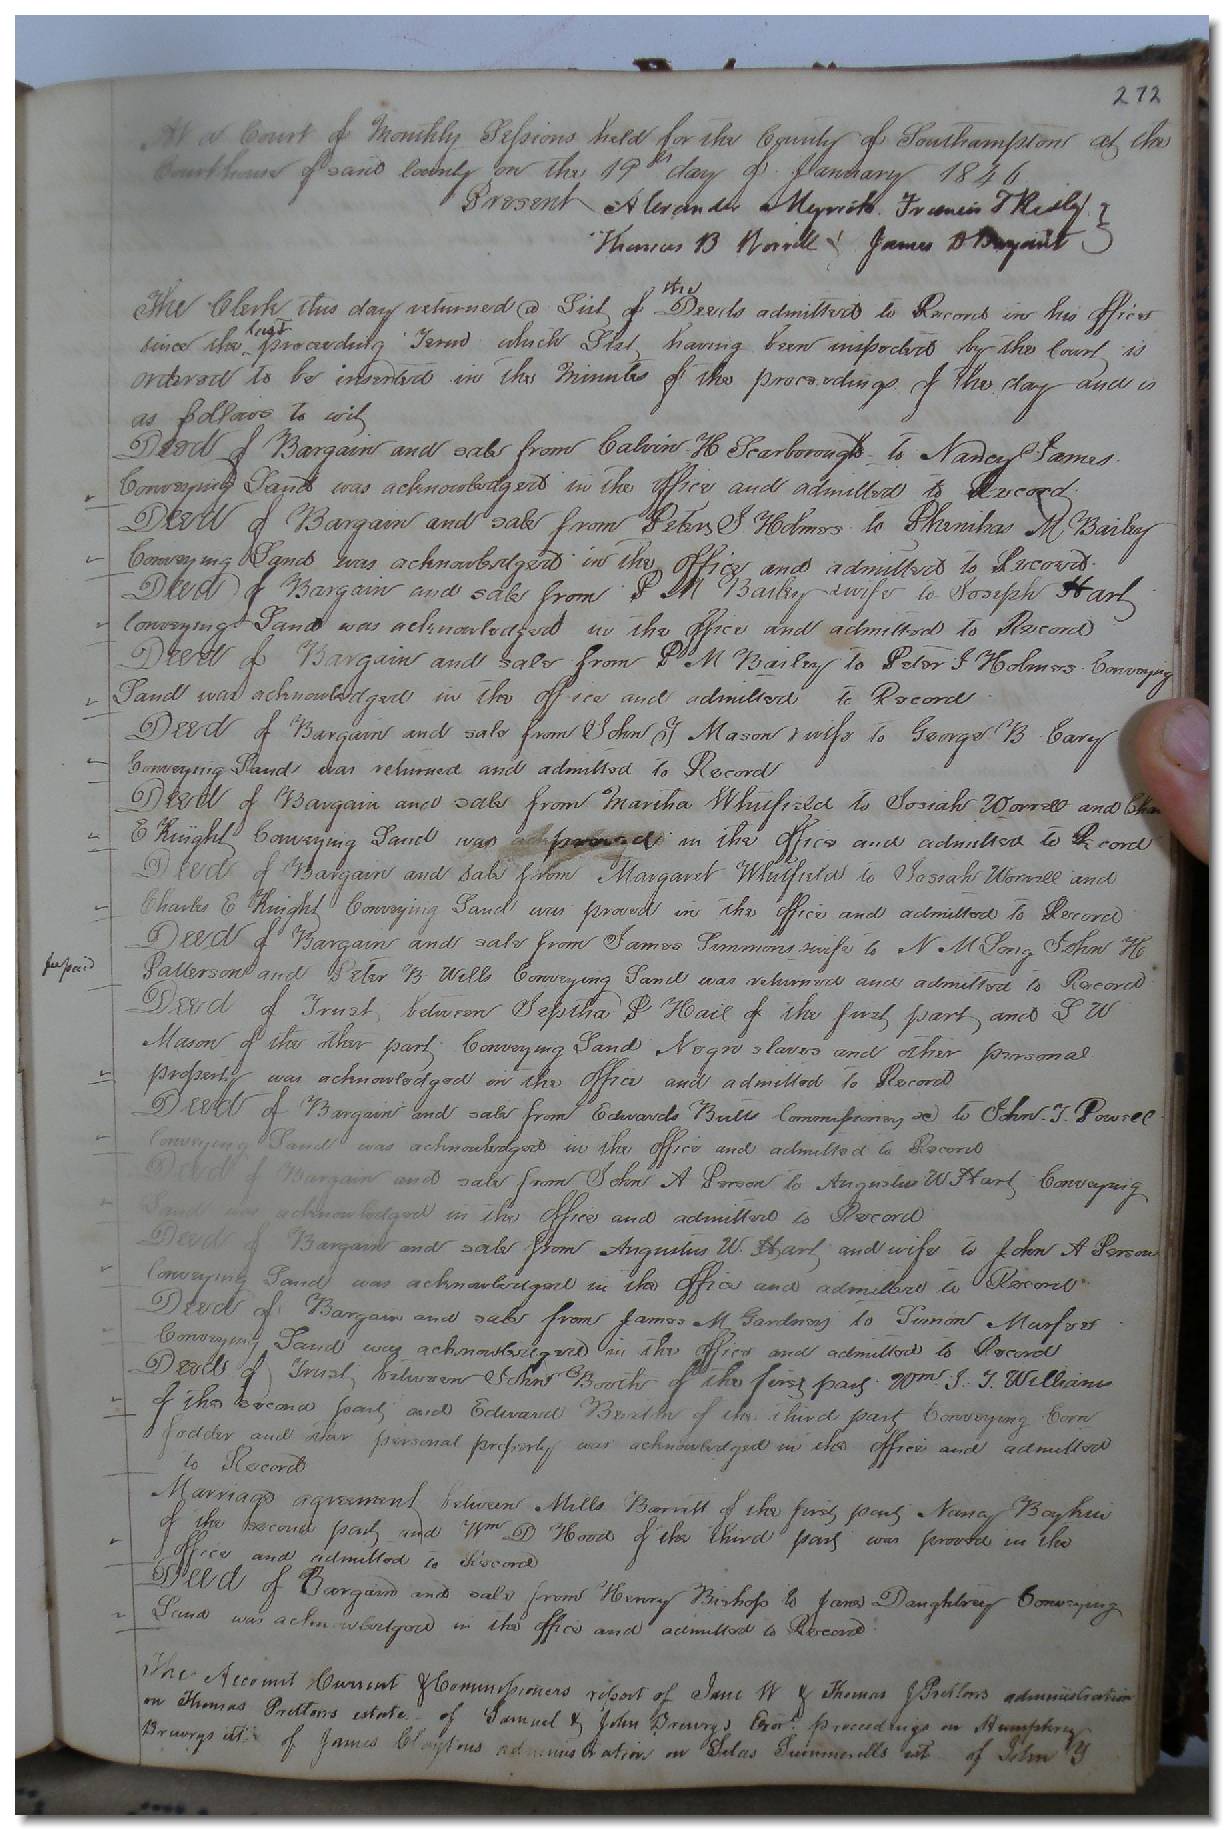 272
At a Court of Monthly Sessions held for the County of Southampton at the
Courthouse of said County on the 19th day of January 1846
Present Alexander Myrick. Francis T Ridley }
Thomas B Worrell & James D Bryant }
The Clerk this day returned a List of the Deeds admitted to Record in his Office
since the last proceeding Term which List, having been inspected by the Court, is
ordered to be inserted in the Minutes of the proceedings of the day and is
as follows to wit
Deed of Bargain and sale from Calvin H Scarborough to Nancy James
Conveying Land was acknowledged in the Office and admitted to Record
Deed of Bargain and sale from Peter J Holmes to Phenihas M Bailey
Conveying Land was acknowledged in the Office and admitted to Record.
Deed of Bargain and sale from P M Bailey & wife to Joseph Hart
Conveying Land was acknowledged in the Office and admitted to Record
Deed of Bargain and sale from P M Bailey to Peter J Holmes Conveying
Land was acknowledged in the office and admitted to Record
Deed of Bargain and sale from John Y Mason & wife to George B Cary
Conveying Land was returned and admitted to Record
Deed of Bargain and sale from Martha Whitfield to Josiah Worrell and Cha
E Knight Conveying Land was proved in the Office and admitted to Record
Deed of Bargain and sale from Margaret Whitfield to Josiah Worrell and
Charles E Knight Conveying Land was proved in the office and admitted to Record
Deed of Bargain and sale from James Simmons & wife to N M Long John H
prepaid
Patterson and Peter B Wells Conveying Land was returned and admitted to Record
Deed of Trust between Jeptha P Hail of the first part and L W
Mason of the other part Conveying Land Negro slaves and other personal
property was acknowledged in the Office and admitted to Record
Deed of Bargain and sale from Edwards Butts Commissioner &c to John T. Powell
Conveying Land was acknowledged in the office and admitted to Record
Deed of Bargain and sale from John A Person to Augustus W Hart Conveying
Land was acknowledged in the Office and admitted to Record
Deed of Bargain and sale from Augustus W. Hart and wife to John A Person
Conveying Land was acknowledged in the Office and admitted to Record
Deed of Bargain and sale from James M Gardner to Simon Murfee
Conveying Land was acknowledged in the Office and admitted to Record
Deed of Trust between John Booth of the first part Wm J. T. Williams
of the second part and Edward Beaton of the third part Conveying Corn
fodder and other personal property was acknowledged in the office and admitted
to Record
Marriage agreement between Mills Barrett of the first part Nancy Boykin
of the second part and Wm D Hood of the third part was proved in the
Office and admitted to Record
Deed of Bargain and sale from Henry Bishop to Jane Daughtrey Conveying
Land was acknowledged in the Office and admitted to Record
The Account Current & Commissioners report of Jane W & Thomas J Pretlows administration
on Thomas Pretlows estate of Samuel & John Drewrys Exors. proceedings on Humphrey
Drewrys est. of James Claytons administration on Silas Summerells est of John Y